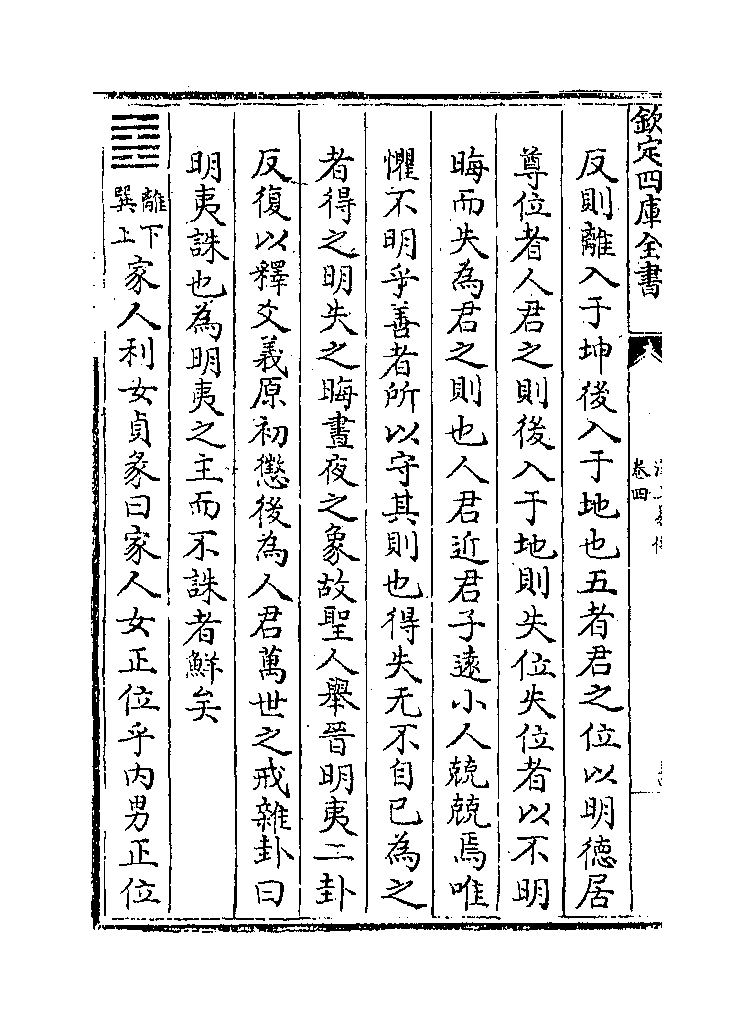 欽定四庫全書
卷四
反則離入于坤後入于地也五者君之位以明德居
尊位者人君之則後入于地則失位失位者以不明
晦而失為君之則也人君近君子遠小人兢兢焉唯
懼不明乎善者所以守其則也得失无不自已為之
者得之明失之晦晝夜之象故聖人舉晉明夷二卦
反復以釋爻義原初懲後為人君萬世之戒雜卦曰
明夷誅也為明夷之主而不誅者鮮矣
䷤離下巽上家人利女貞彖曰家人女正位乎内男正位